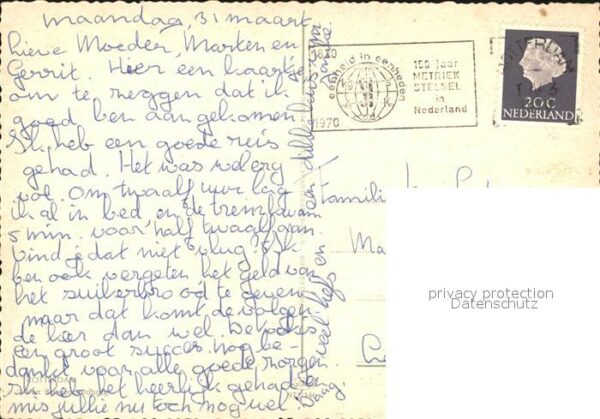 maandag, 31 maart,
Lieve Moeder, Marten en
Gerrit. Hier een kaartje
om te zeggen dat ik
goed ben aangekomen
Ik heb een goede reis
gehad. Het was wel erg
vol. Om twaalf uur lag
ik al in bed en de trein kwam
5 min. voor half twaalf aan
vind je dat niet vlug? Ik
ben ook vergeten het geld van
het suikerbrood te geven
maar dat komt de volgen
de keer dan wel. De
een groot succes. nog be-
dankt voor alle goede zorgen
Ik heb het heerlijk gehad en
mis jullie nu toch nog wel
veel liefs en een
1820
1970
eenheid in eenheden
150 jaar
METRIEK
STELSEL
in
Nederland
ROTTERDAM
20 C
NEDERLAND
Familie
Ma
ROTTERDAM
privacy protection
Datenschutz